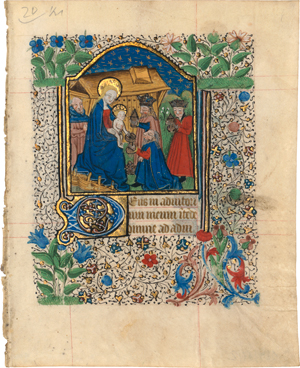 20
Deus in adiutori
um meum intēde
Domine ad adiu